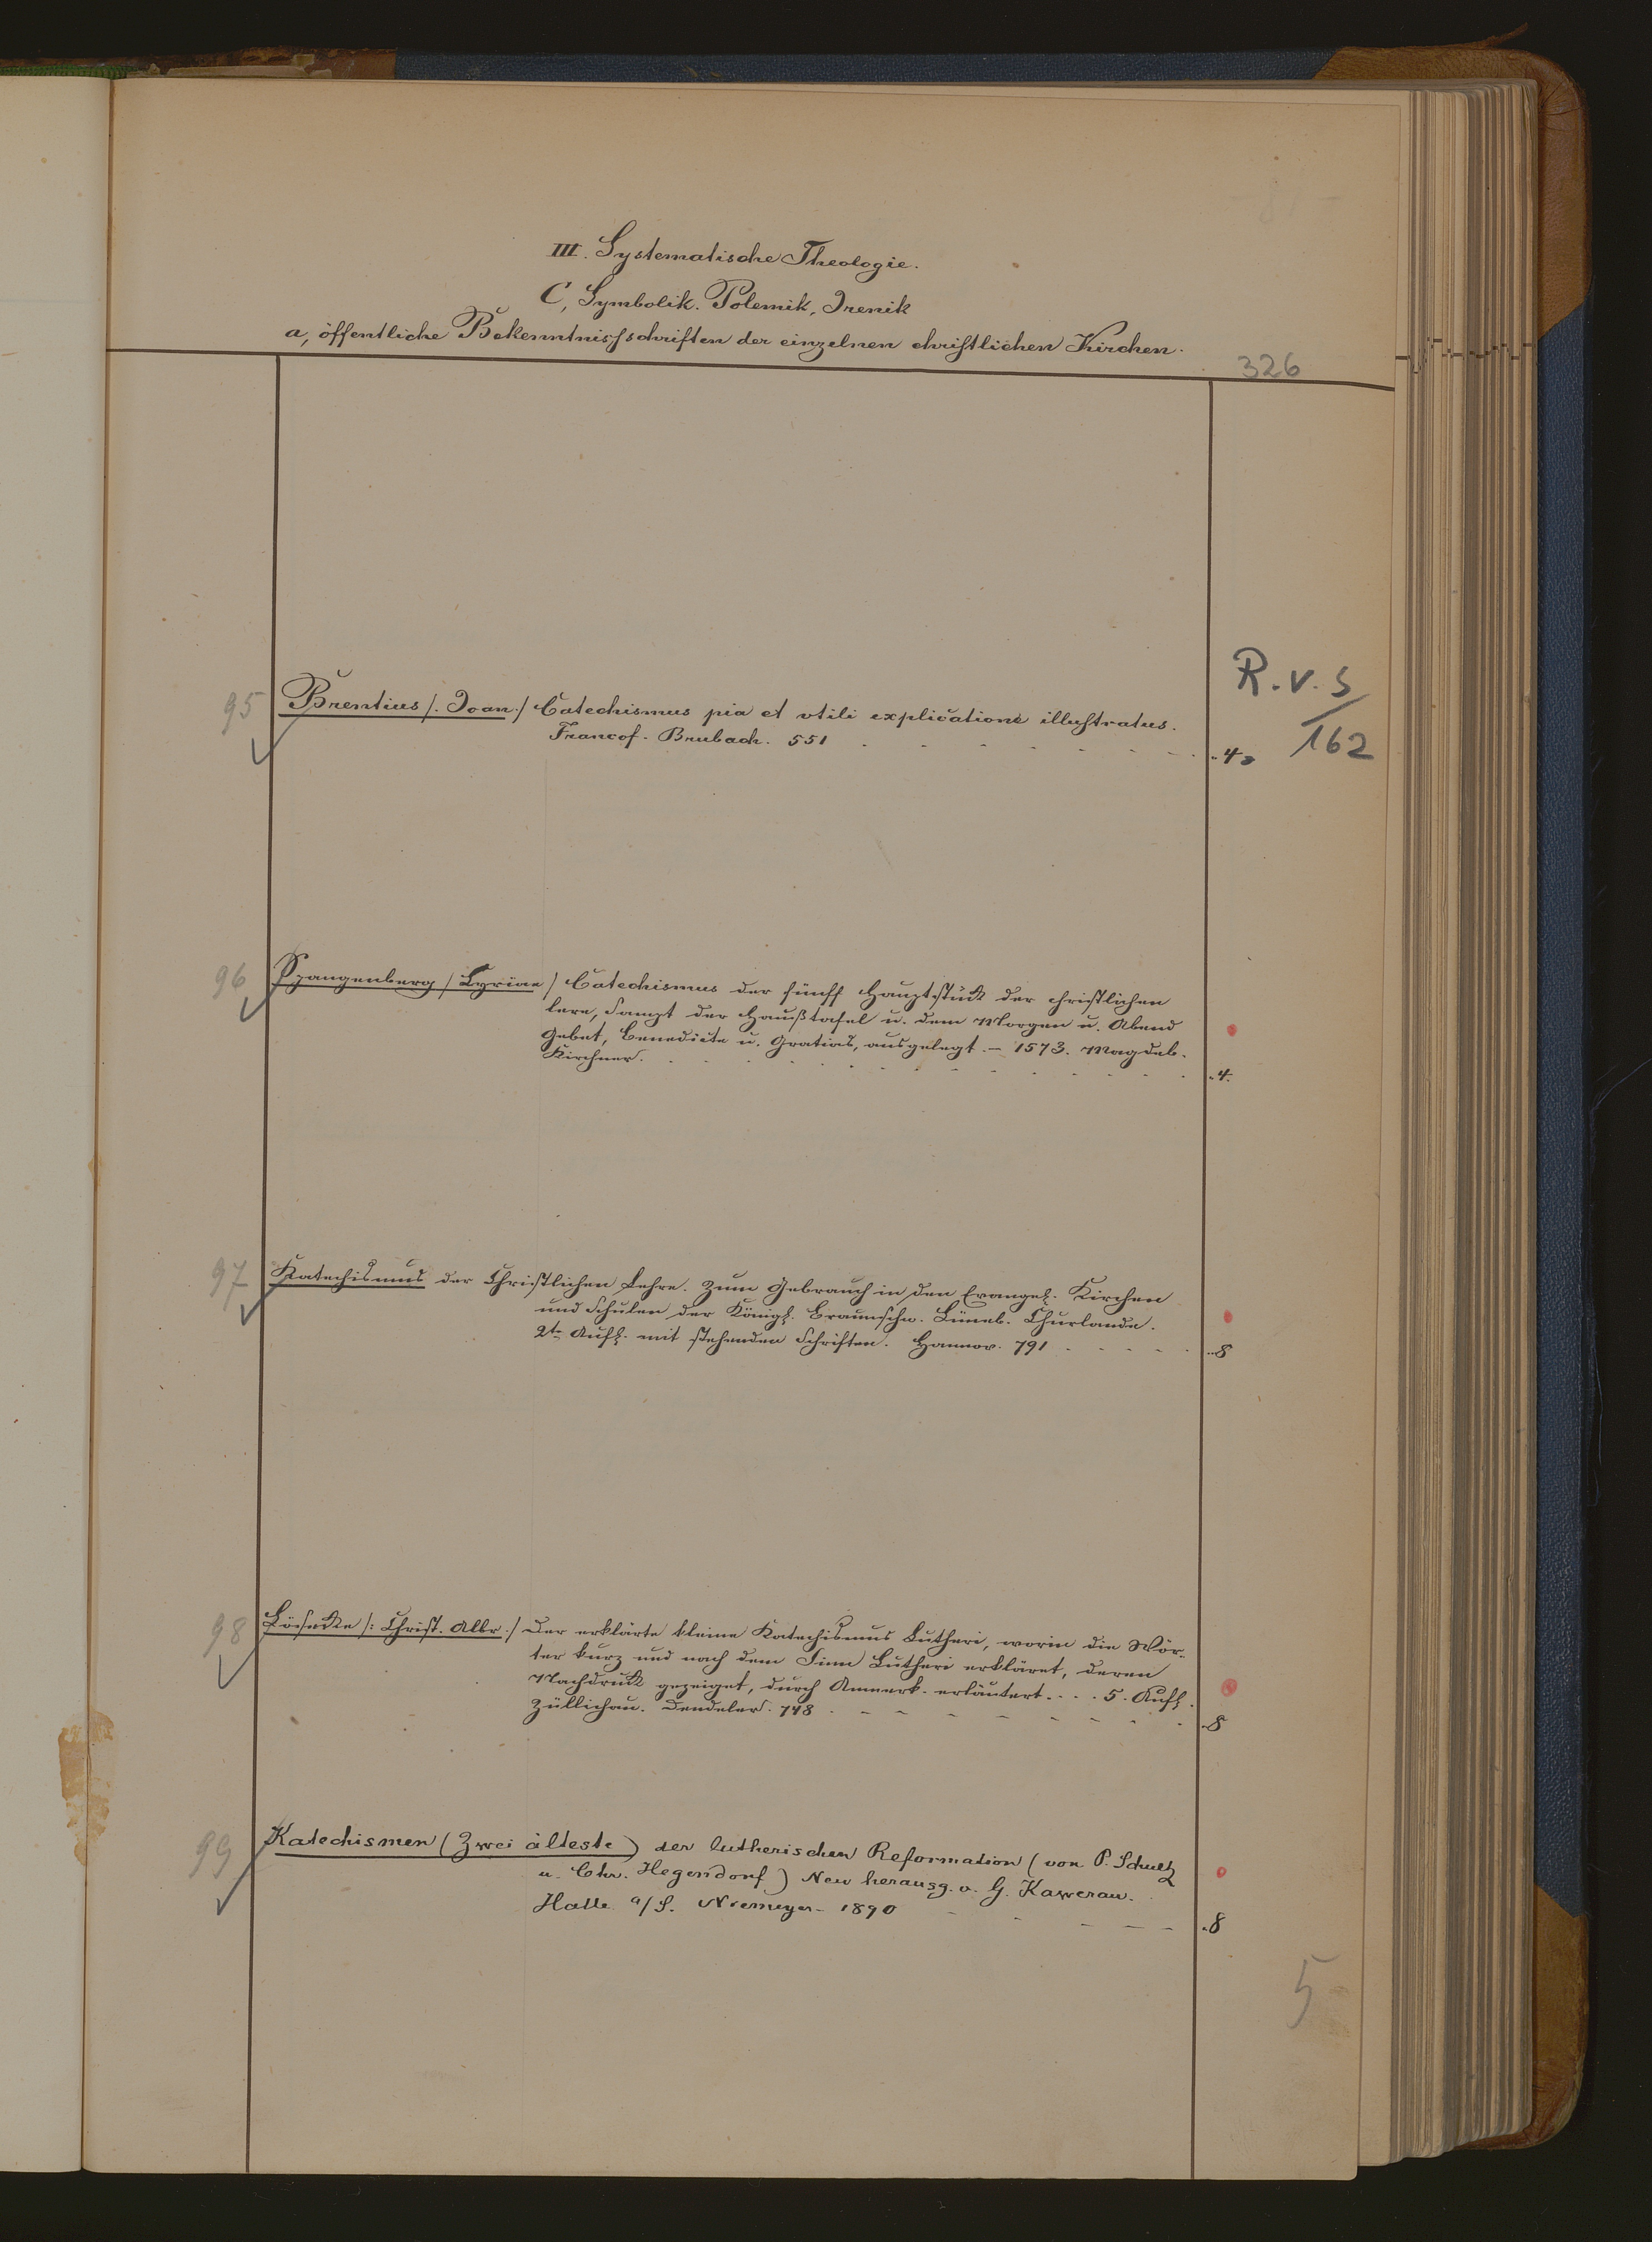 III. Systematische Theologie.
C, Symbolik. Polemik, Irenik
a, öffentliche Bekenntnissschriften der einzelnen christlichen Kirchen.
326
95 Brentius /. Joan./ Catechismus pia et utili explicatione illustratus.
Francof. Brubach. 551 . 4
R.v.S
162
96 Spangenberg / Cyriac / Catechismus der fünff Hauptstück der christlichen
lere, sampt der Haußtafel u. dem Morgen u. Abend
Gebet, Benedicte u. Gratias, ausgelegt. – 1573. Magdeb.
Kirchner. . 4.
97 Katechismus der Christlichen Lehre. Zum Gebrauch in den Evangel. Kirchen
und Schulen der Königl. Braunschw. Lüneb. Churlande.
2te Aufl. mit stehenden Schriften. Hannov. 791 . 8
98 Lösecke /: Christ. Albr./ Der erklärte kleine Katechismus Lutheri, worin die Wör-
ter kurz und nach dem Sinn Lutheri erkläret, deren
Nachdruck gezeiget, durch Anmerk. erläutert. . . . 5. Aufl.
Züllichau. Dendeler. 748 . 8
99 Katechismen (Zwei älteste) der lutherischen Reformation (von P. Schultz
u. Chr. Hegendorf) Neu herausg. v. G. Kawerau.
Halle a/S. Niemeyer – 1890 . 8
5